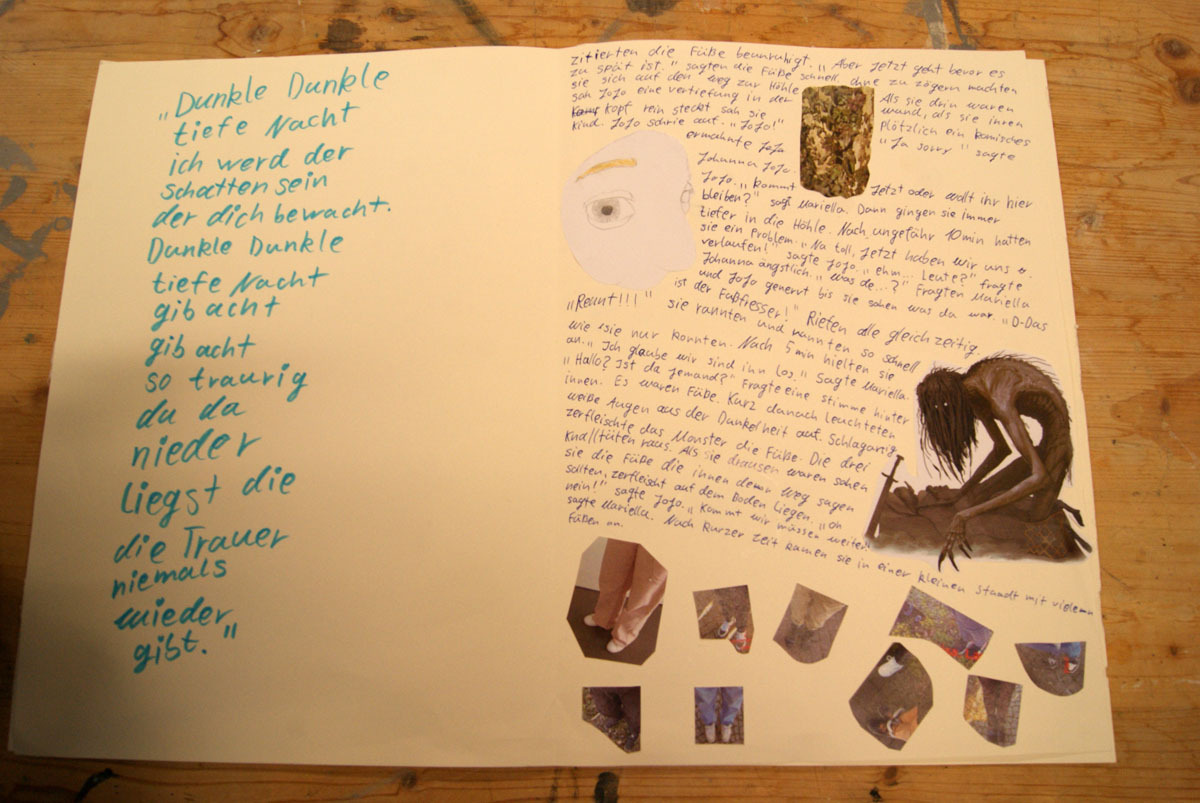 "Dunkle Dunkle
tiefe Nacht
ich werd der
schatten sein
der dich bewacht.
Dunkle Dunkle
tiefe Nacht
gib acht
gib acht
so traurig
du da
nieder
liegst die
die Trauer
niemals
wieder
gibt."
zitierten die Füße beunruhigt. "Aber Jetzt geht bevor es
zu spät ist." sagten die Füße schnell. ohne zu zögern machten
sie sich auf den Weg zur Höhle. Als sie drin waren
sah JoJo eine vertiefung in der wand, als sie ihren
kopf rein steckt sah sie Plötzlich ein komisches
Kind. JoJo schrie auf. "JoJo!" "Ja sorry" sagte
ermahnte JoJo
Johanna JoJo.
JoJo. "kommt Jetzt oder wollt ihr hier
bleiben?" sagt Mariella. Dann gingen sie immer
tiefer in die Höhle. Nach ungefähr 10min hatten
sie ein Problem. "Na toll, Jetzt haben wir uns
verlaufen!" sagte JoJo. "ehm... Leute?" fragte
Johanna ängstlich. "was de...?" Fragten Mariella
und JoJo genervt bis sie sahen was da war. "D-Das
ist der Faßfresser!" Riefen alle gleichzeitig.
"Rennt!!!" sie rannten und rannten so schnell
wie sie nur konnten. Nach 5min hielten sie
an. "Ich glaube wir sind ihn los." Sagte Mariella.
"Hallo? Ist da jemand?" Fragte eine stimme hinter
ihnen. Es waren Füße. Kurz danach leuchteten
weiße Augen aus der Dunkelheit auf. Schlagartig
zerfleischte das Monster die Füße. Die drei
Knalltüten raus. Als sie drausen waren sahen
sie die Füße die ihnen denn Weg sagen
sollten, zerfleischt auf dem Boden Liegen. "oh
nein!" sagte JoJo. "Kommt wir müssen weiter."
sagte Mariella. Nach Kurzer Zeit kamen sie in einer kleinen standt mit vielemn
Füßen an.